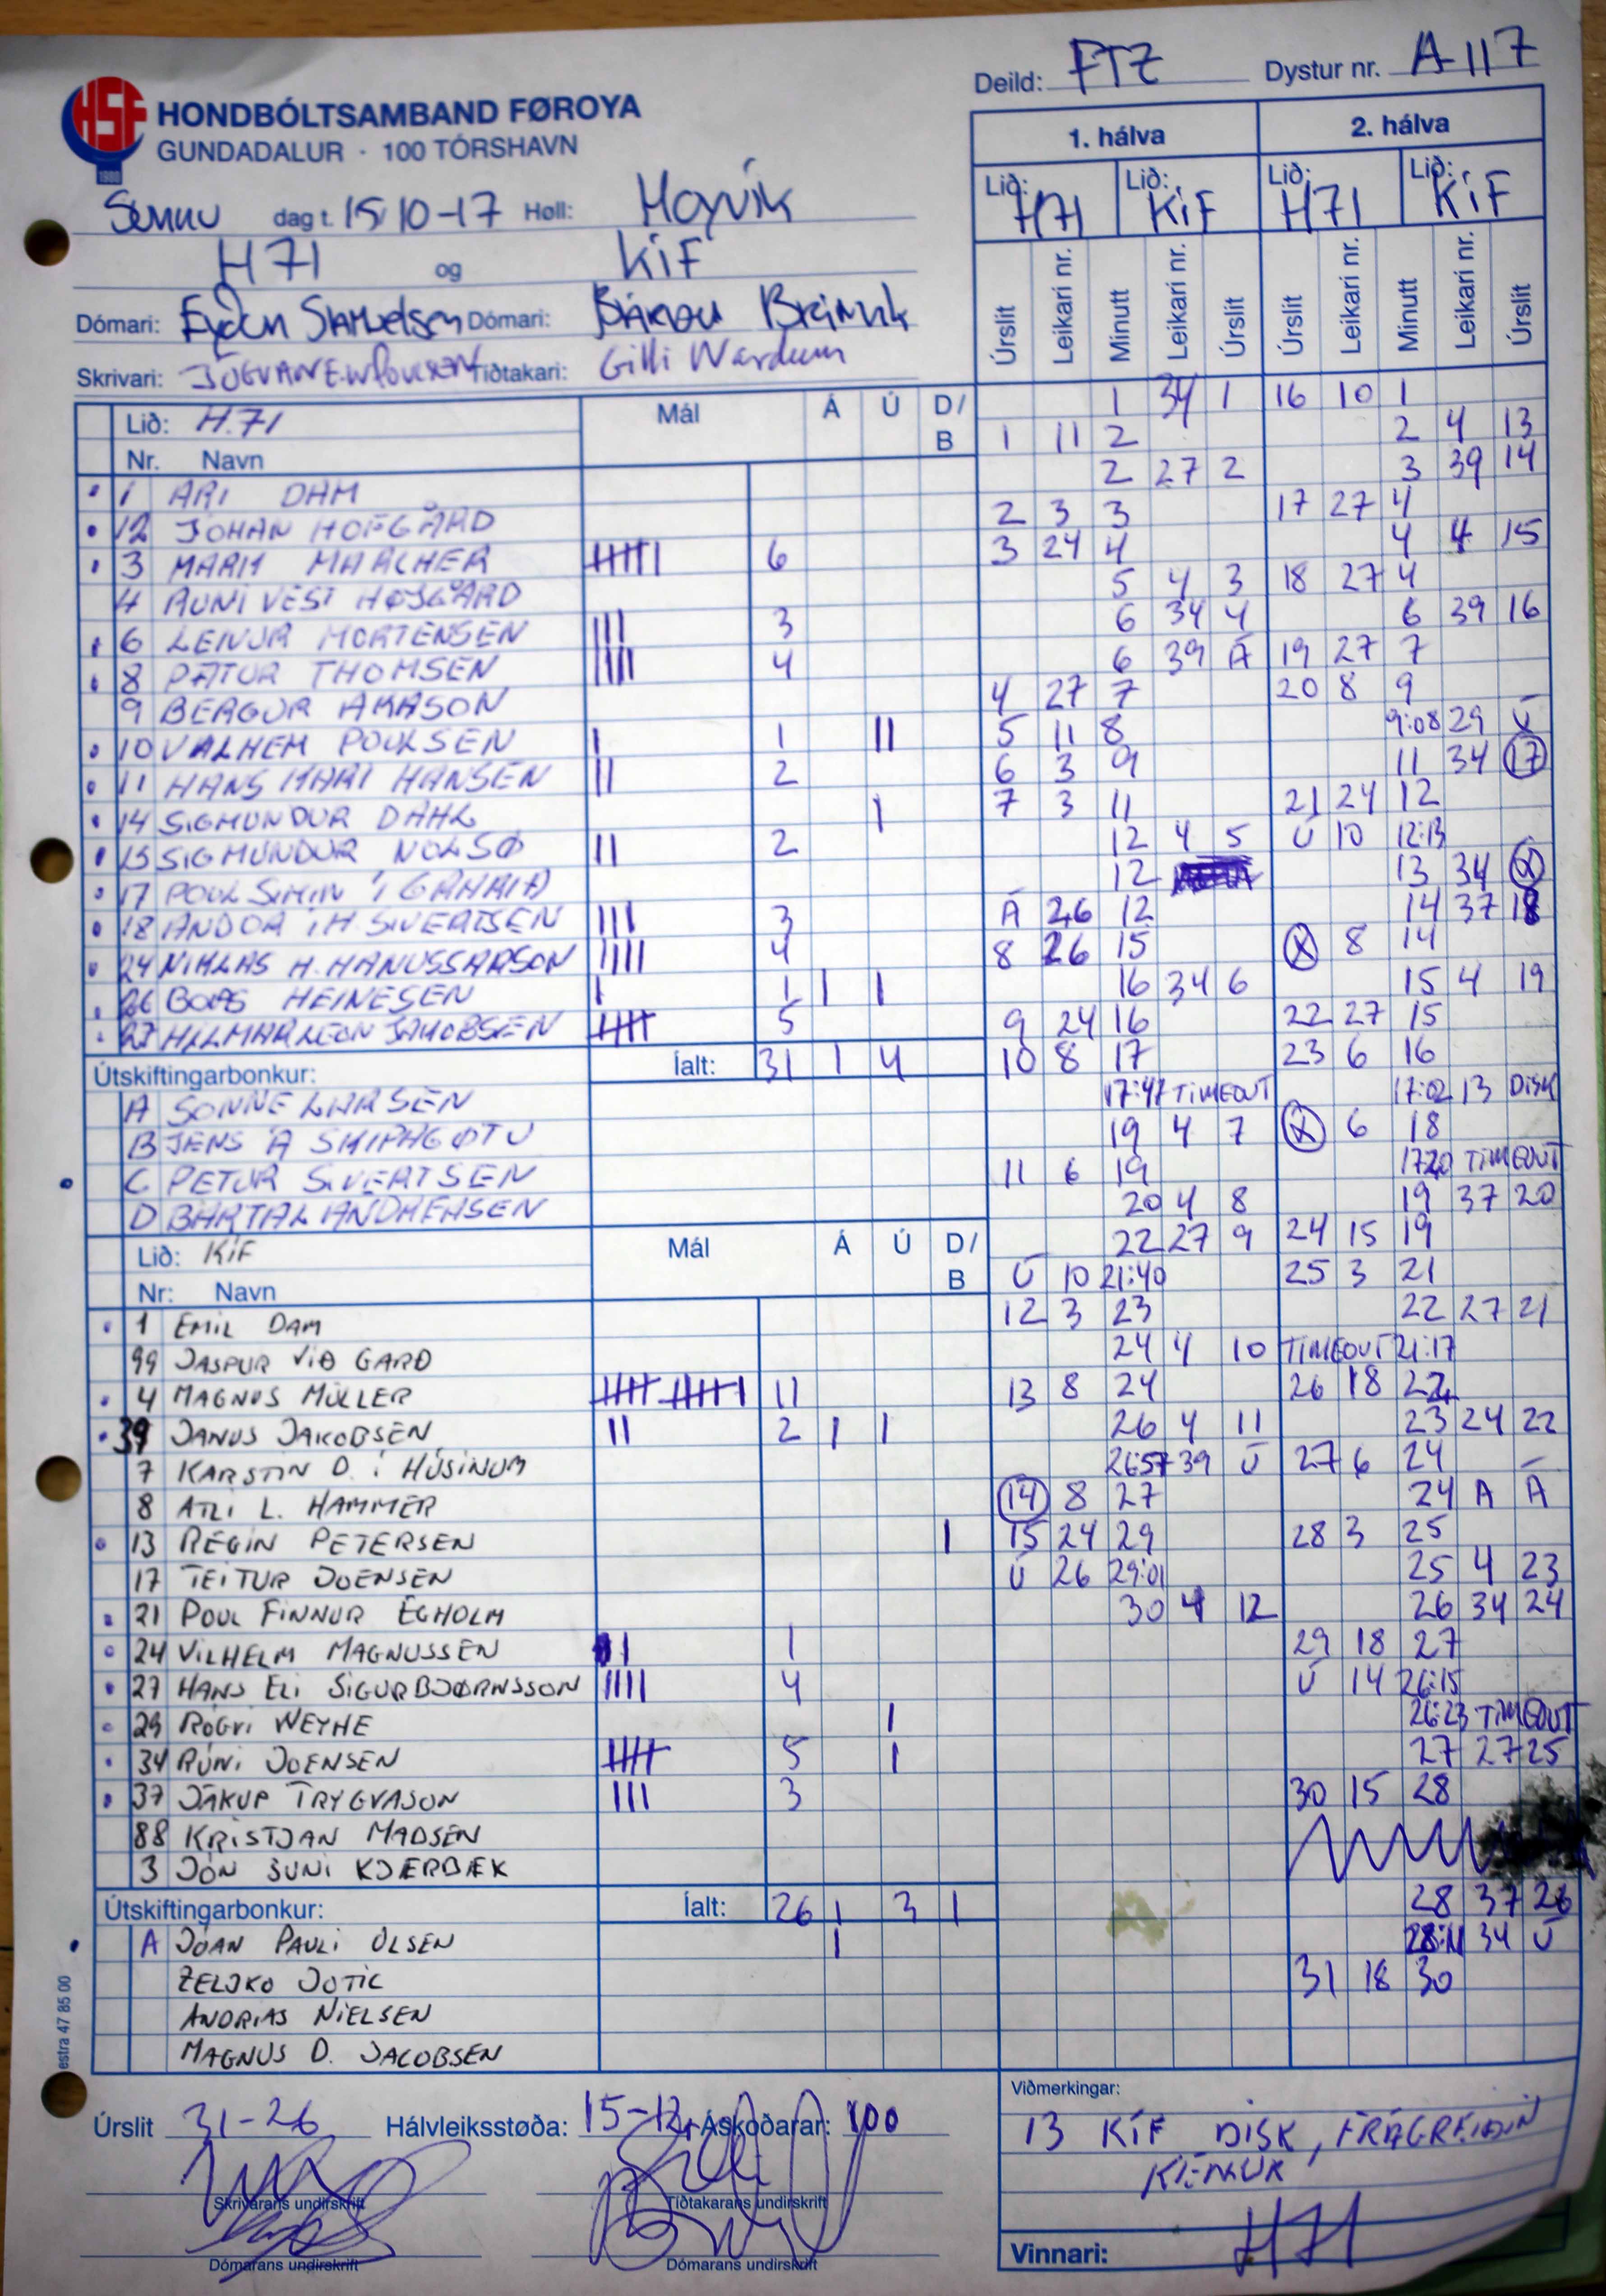 Deild: FTZ Dystur nr. A-117
HSF
1980
HONDBÓLTSAMBAND FØROYA
GUNDADALUR · 100 TÓRSHAVN
Sunnu dag t. 15/10-17 Høll: Hoyvík
H71 og KÍF
Dómari: Eyðun Samuelsen Dómari: Bárður
Skrivari: Tíðtakari: Gilli Wardum
1. hálva 2. hálva
Lið: H71 Lið: KÍF Lið: H71 Lið: KÍF
Úrslit Leikari nr. Minutt Leikari nr. Úrslit Úrslit Leikari nr. Minutt Leikari nr. Úrslit
Lið: H.71 Mál Á Ú D/B
Nr. Navn
1 ARI DAM
12 JÓHAN HOFGÅRD
3 6
4 RÚNI VEST HØJGÅRD
6 LEIVUR MORTENSEN 3
8 PÆTUR THOMSEN 4
9 BERGUR ÁKASON
10 VALHEM POULSEN 1 II
11 HANS MARI HANSEN 2
14 SIGMUNDUR DAHL I
15 SIGMUNDUR NOLSØ 2
17
18 ANDOR Í H. SIVERTSEN 3
24 NIKLAS H. HANUSSARSON 4
26 BOAS HEINESEN 1 I I
27 HILMAR LEON JAKOBSEN 5
Útskiftingarbonkur: Íalt: 31 1 4
A SONNE LARSEN
B JENS Á SKIPAGØTU
C PETUR SIVERTSEN
D BARTAL ANDREASEN
Lið: KÍF Mál Á Ú D/B
Nr: Navn
1 EMIL DAM
99 JASPUR VIÐ GARÐ
4 MAGNUS MÜLLER 11
39 JANUS JAKOBSEN 2 I I
7 KARSTIN D. Í HÚSINUM
8 ATLI L. HAMMER
13 REGIN PETERSEN I
17 TEITUR JOENSEN
21 POUL FINNUR EGHOLM
24 VILHELM MAGNUSSEN 1
27 HANS ELI SIGURBJØRNSSON 4
29 RÓGVI WEYHE I
34 RÚNI JOENSEN 5 I
37 JÁKUP TRYGVASON 3
88 KRISTJAN MADSEN
3 JÓN SUNI KJÆRBÆK
Útskiftingarbonkur: Íalt: 26 1 3 1
A JÓAN PAULI OLSEN I
ZELJKO JOTIC
ANDRIAS NIELSEN
MAGNUS D. JACOBSEN
1 34 1 16 10 1
1 11 2 2 4 13
2 27 2 3 39 14
2 3 3 17 27 4
3 24 4 4 4 15
5 4 3 18 27 4
6 34 4 6 39 16
6 39 Á 19 27 7
4 27 7 20 8 9
5 11 8 9:08 29 Ú
6 3 9 11 34 17
7 3 11 21 24 12
12 4 5 Ú 10 12:13
12 13 34 X
Á 26 12 14 37 18
8 26 15 X 8 14
16 34 6 15 4 19
9 24 16 22 27 15
10 8 17 23 6 16
17:47 TIMEOUT 17:02 13 DISK
19 4 7 X 6 18
11 6 19 17:20 TIMEOUT
20 4 8 19 37 20
22 27 9 24 15 19
Ú 10 21:40 25 3 21
12 3 23 22 27 21
24 4 10 TIMEOUT 21:17
13 8 24 26 18 22
26 4 11 23 24 22
26:57 39 Ú 27 6 24
14 8 27 24 A Á
15 24 29 28 3 25
Ú 26 29:01 25 4 23
30 4 12 26 34 24
29 18 27
Ú 14 26:15
26:23 TIMEOUT
27 27 25
30 15 28
28 37 26
28:11 34 Ú
31 18 30
estra 47 85 00
Úrslit 31-26 Hálvleiksstøða: 15-12 Áskoðarar: 100
Skrivarans undirskrift Tíðtakarans undirskrift
Dómarans undirskrift Dómarans undirskrift
Viðmerkingar:
13 KÍF DISK, FRÁGREIÐIN
KEMUR
Vinnari: H71